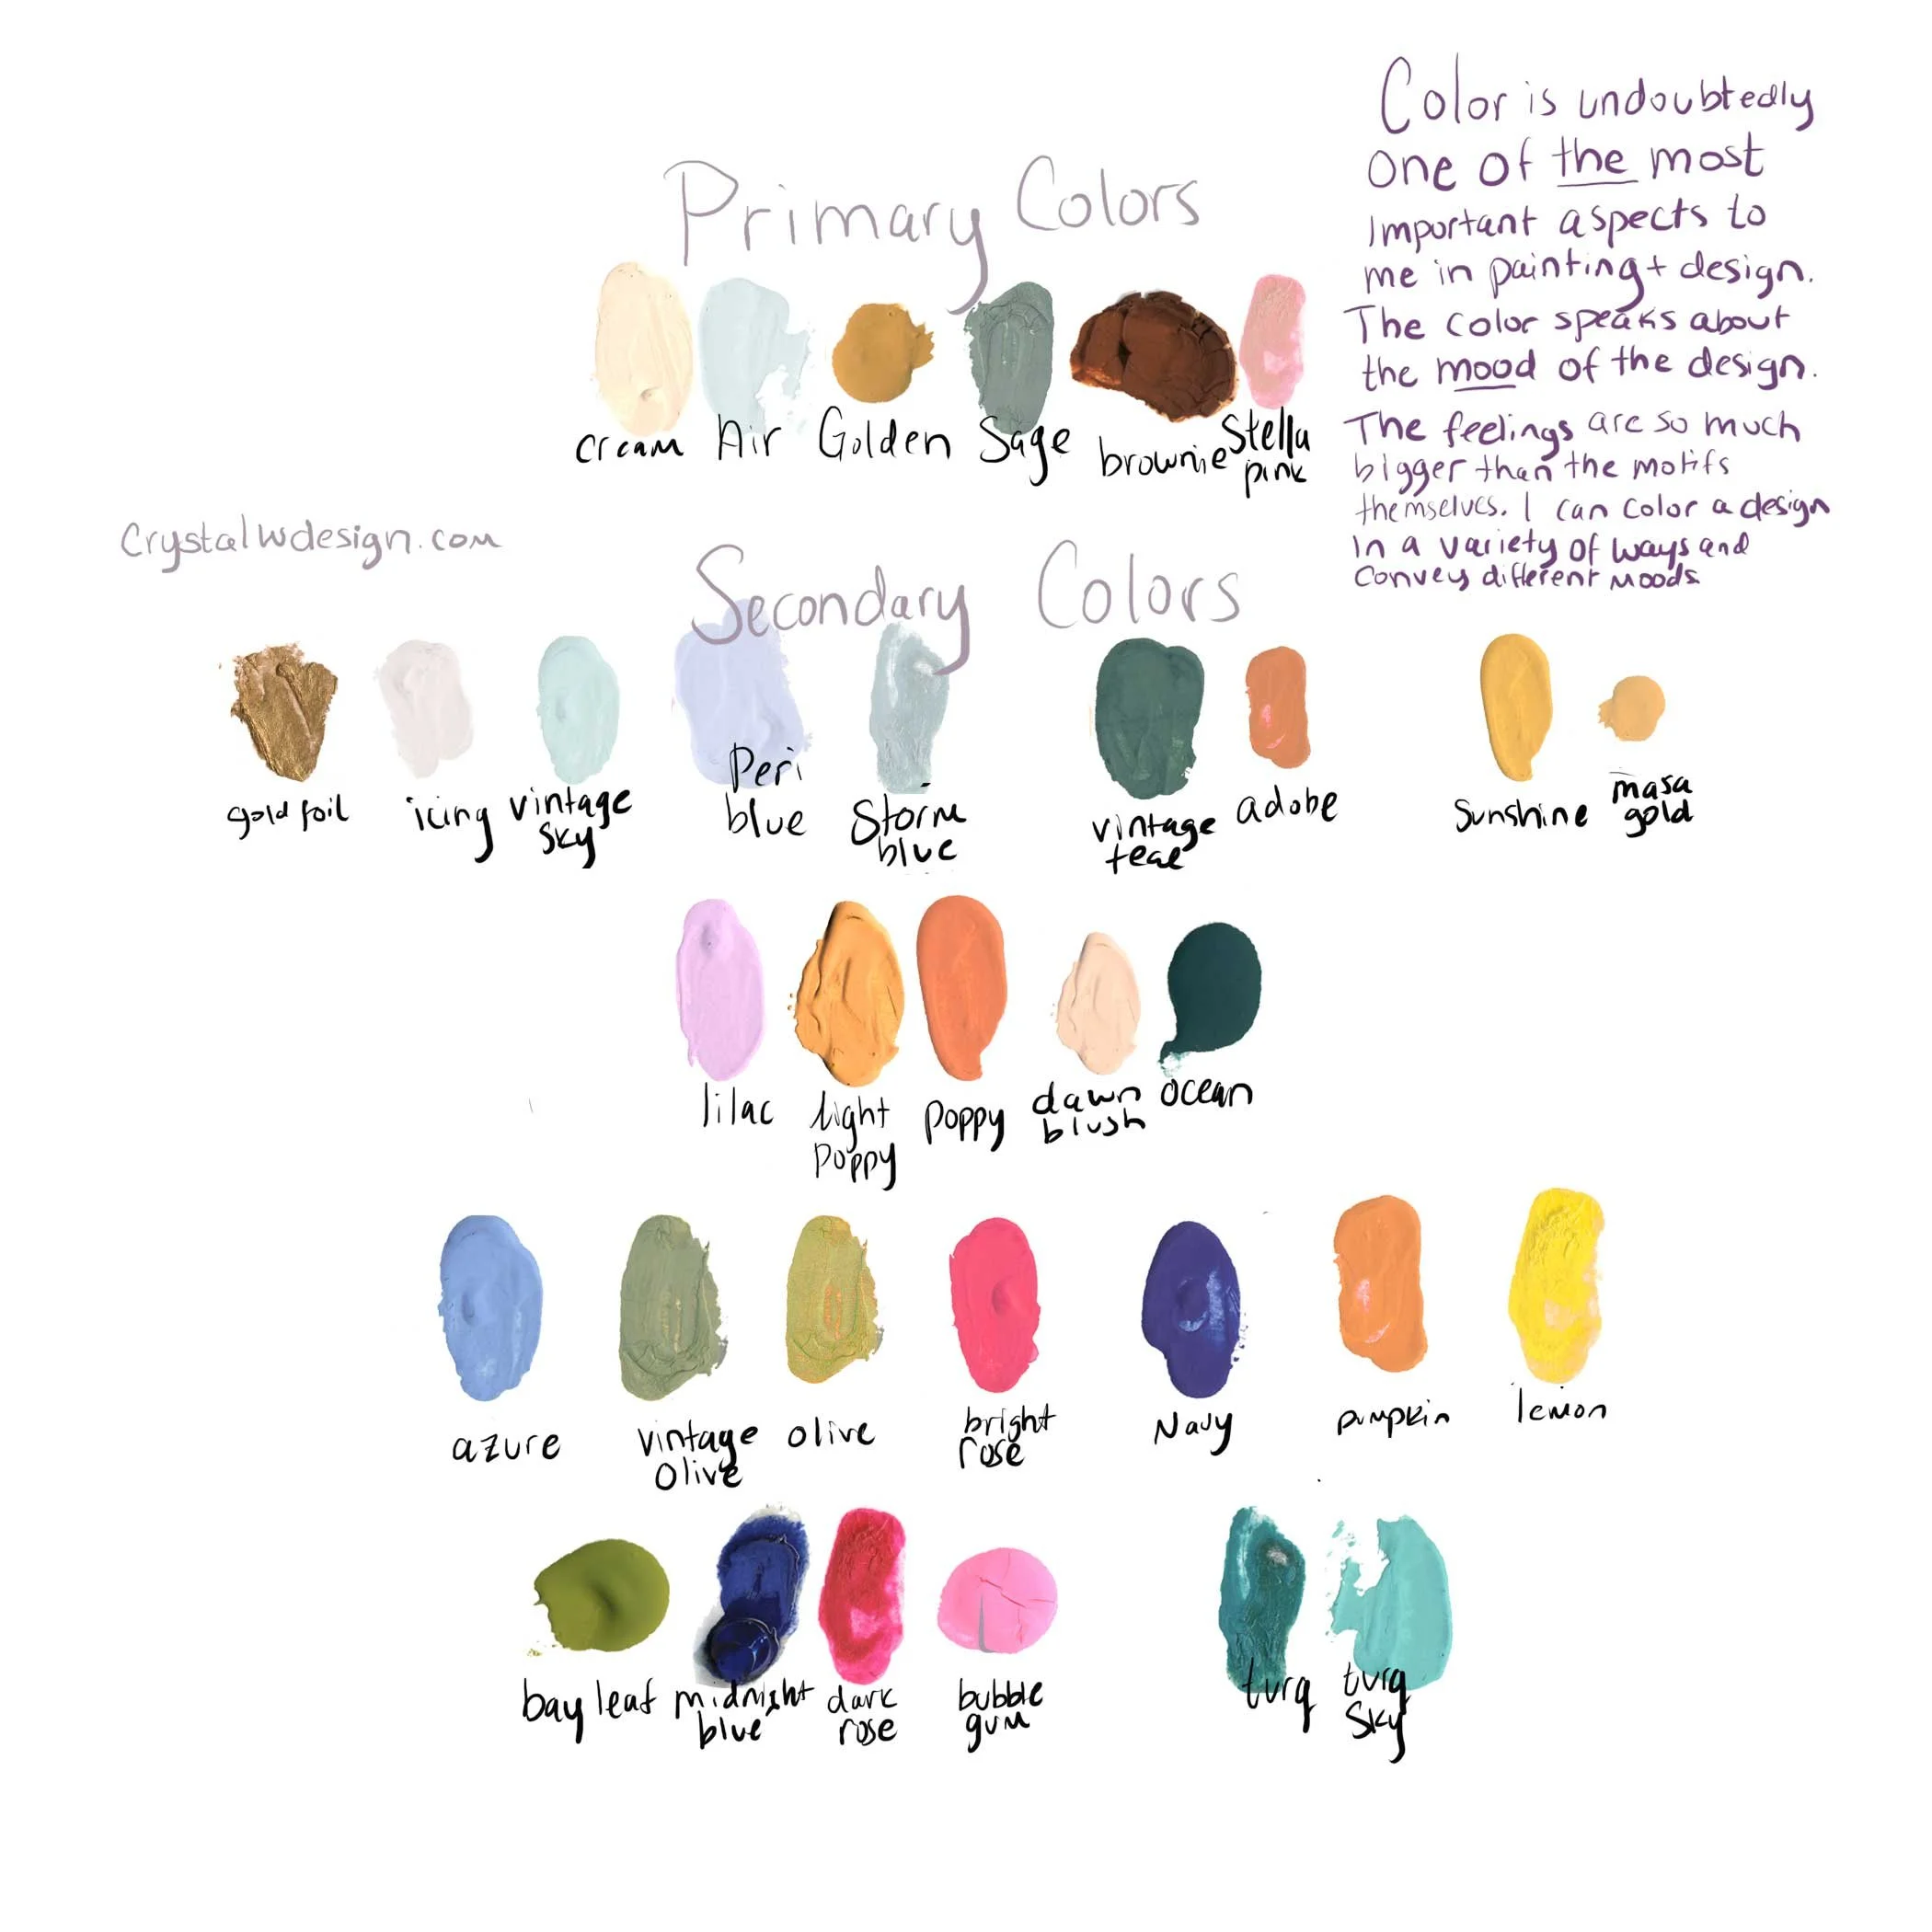 Primary Colors
Color is undoubtedly
one of the most
Important aspects to
me in painting + design.
The color speaks about
the mood of the design.
The feelings are so much
bigger than the motifs
themselves. I can color a design
In a variety of ways and
Convey different moods
cream Air Golden Sage brownie Stella
pink
Crystalwdesign.com
Secondary Colors
gold foil icing vintage
sky
Peri
blue
Storm
blue
vintage
teal
adobe
Sunshine
masa
gold
lilac
light
poppy
poppy
dawn
blush
ocean
azure
vintage
olive
olive
bright
rose
Navy
pumpkin
lemon
bay leaf
midnight
blue
dark
rose
bubble
gum
turq
turq
sky